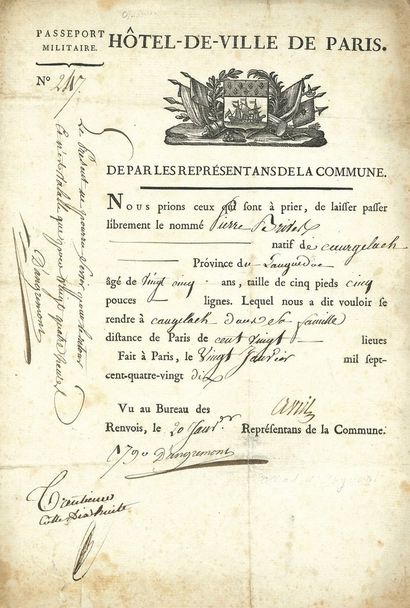 PASSEPORT
MILITAIRE.
HÔTEL-DE-VILLE DE PARIS.
N.º 247
DE PAR LES REPRÉSENTANS DE LA COMMUNE.
Nous prions ceux qui sont à prier, de laisser passer
librement le nommé Pierre
natif de
Province du Languedoc
âgé de Vingt cinq ans, taille de cinq pieds cinq
pouces lignes. Lequel nous a dit vouloir se
rendre à dans Sa famille
distance de Paris de cent Vingt lieues
Fait à Paris, le Vingt Janvier mil sept-
cent-quatre-vingt dix
Vu au Bureau des
Renvois, le 20 Janv.er Représentans de la Commune.
1790 D'angremont
Le Présent ne pourra Servir pour
que pour Vingt quatre heures
D'angremont